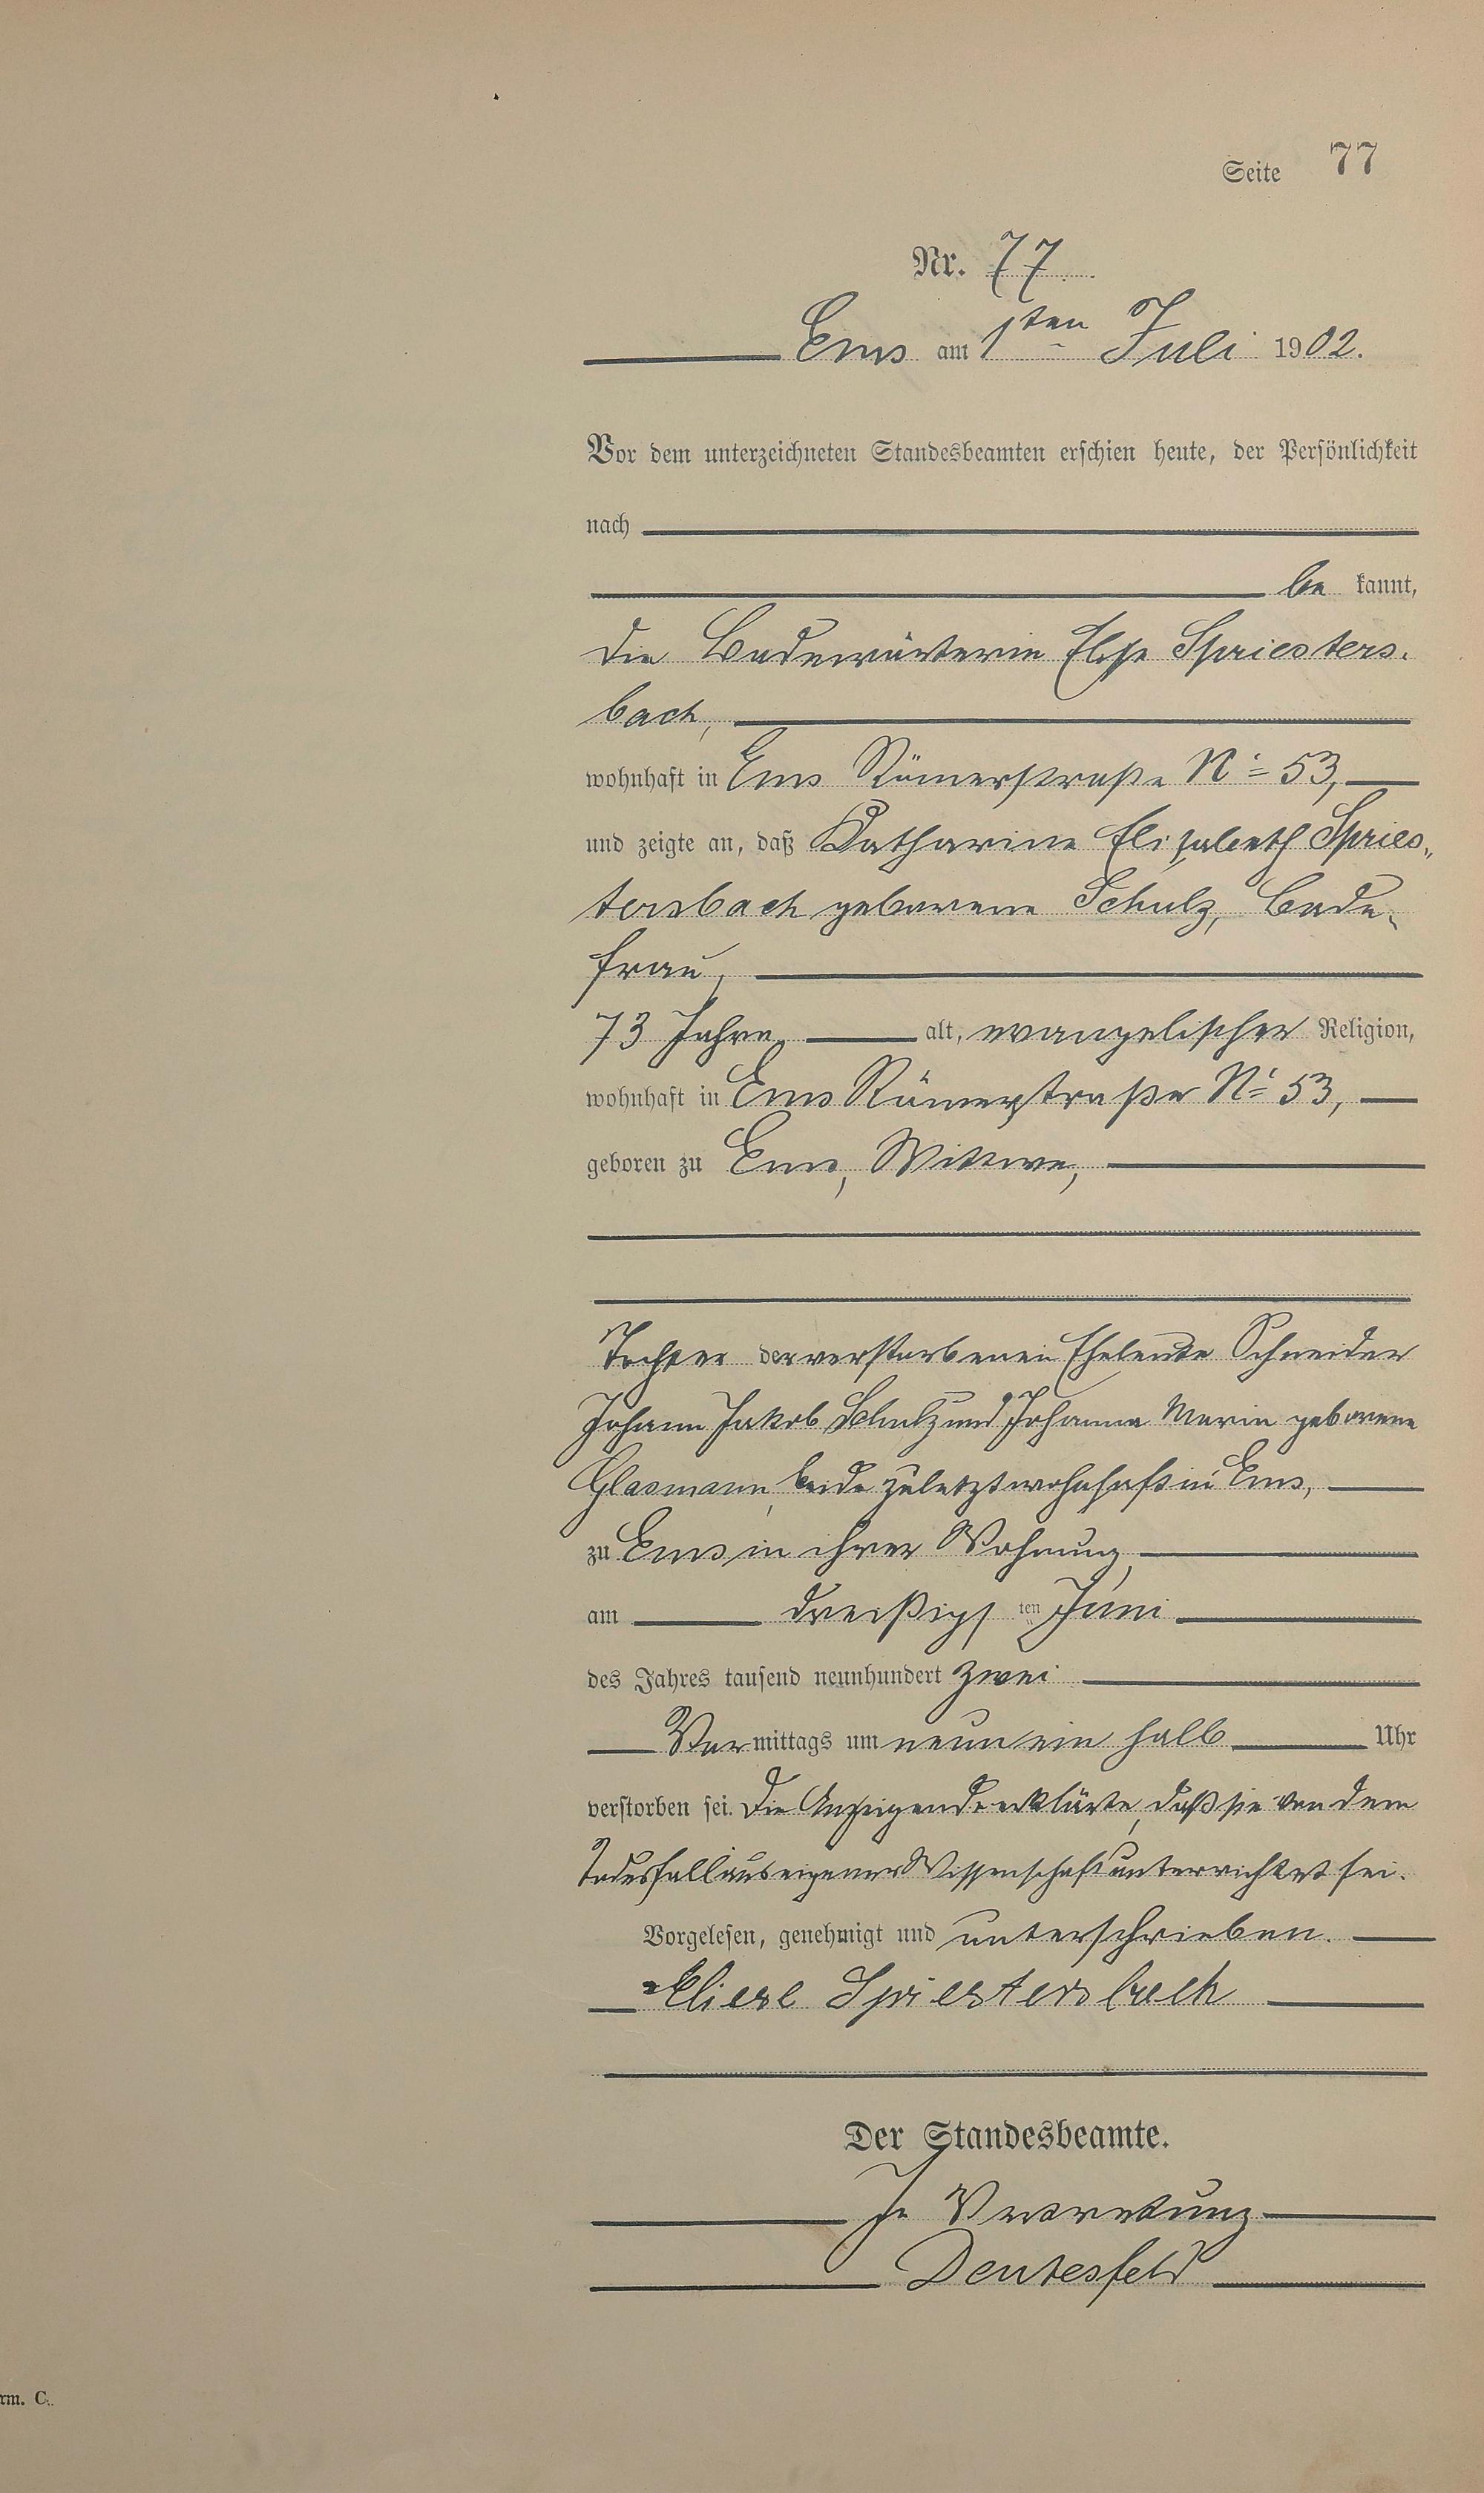 Seite 77
Nr. 77.
Ems am 1ten Juli 1902.
Vor dem unterzeichneten Standesbeamten erschien heute, der Persönlichkeit
nach
be kannt,
die Badewärterin Elise Spriesters-
bach,
wohnhaft in Ems Römerstraße No 53,
und zeigte an, daß Katharine Elisabeth Spries-
tersbach geborene Schulz, Bade-
frau,
73 Jahre alt, evangelischer Religion,
wohnhaft in Ems Römerstraße No 53,
geboren zu Ems, Wittwe,
Tochter der verstorbenen Eheleute Schneider
Johann Jakob Schulz und Johanna Maria geborene
Glasmann, beide zuletzt wohnhaft in Ems,
zu Ems in ihrer Wohnung,
am dreißigs ten Juni
des Jahres tausend neunhundert zwei
Vor mittags um neun ein halb Uhr
verstorben sei. Die Anzeigende erklärte, daß sie von dem
Todesfall aus eigener Wissenschaft unterrichtet sei.
Vorgelesen, genehmigt und unterschrieben.
Eliese Spriestersbach
Der Standesbeamte.
In Vertretung
rm. C.